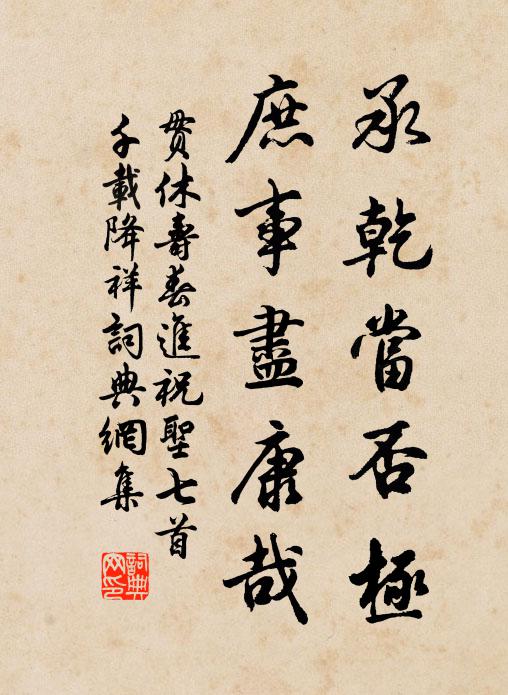 承乾當否極
庶事盡康哉
貫休壽春進祝聖七首
千載降祥詞典網集
詞典網印